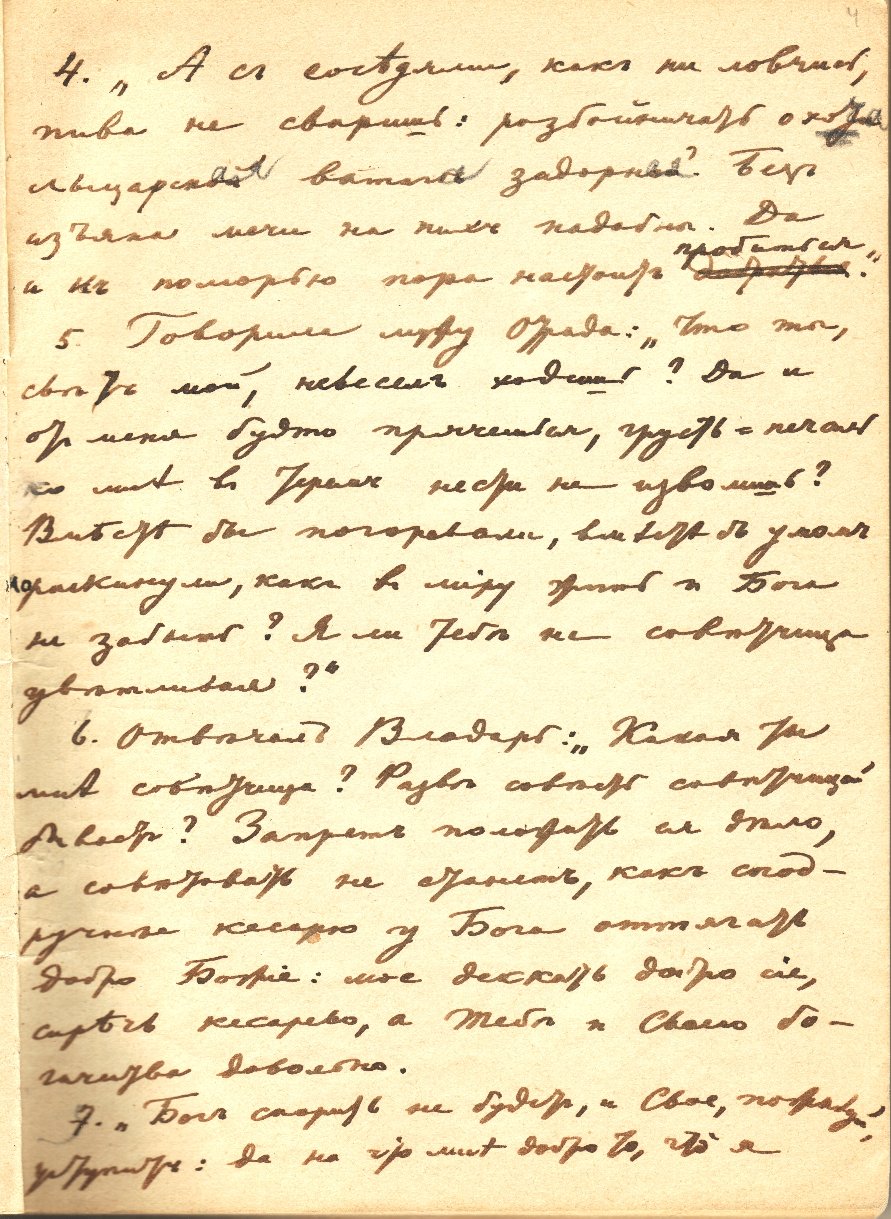 4
4. „А съ сосѣдями, какъ ни ловчись,
пива не сваришь: разбойничать охоча
лыцарская ватага задорная. Безъ
изъяна мечи на нихъ надобны. Да
пробиться
и къ поморью пора настоитъ добраться.“
5. Говорила мужу Отрада: „Что ты,
свѣтъ мой, невеселъ ходишь? Да и
отъ меня будто прячешься, грусть-печаль
ко мнѣ въ теремъ нести не изволишь?
Вмѣстѣ бы погоревали, вмѣстѣ бъ умомъ
пораскинули, какъ въ міру жить и Бога
не забыть? Я ли тебѣ не совѣтчица
увѣтливая?“
6. Отвѣчалъ Владарь: „Какая ты
мнѣ совѣтчица? Развѣ совѣсть совѣтчицей
бываетъ? Запретъ положить ея дѣло,
а совѣтовать не станетъ, какъ спод-
ручнѣе кесарю у Бога оттягать
добро Божіе: мое дескать добро сіе,
сирѣчь кесарево, а Тебѣ и Своего бо-
гачества довольно.
7. „Богъ спорить не будетъ, и Свое, пожалуй,
уступитъ: да на что мнѣ добро то, что я